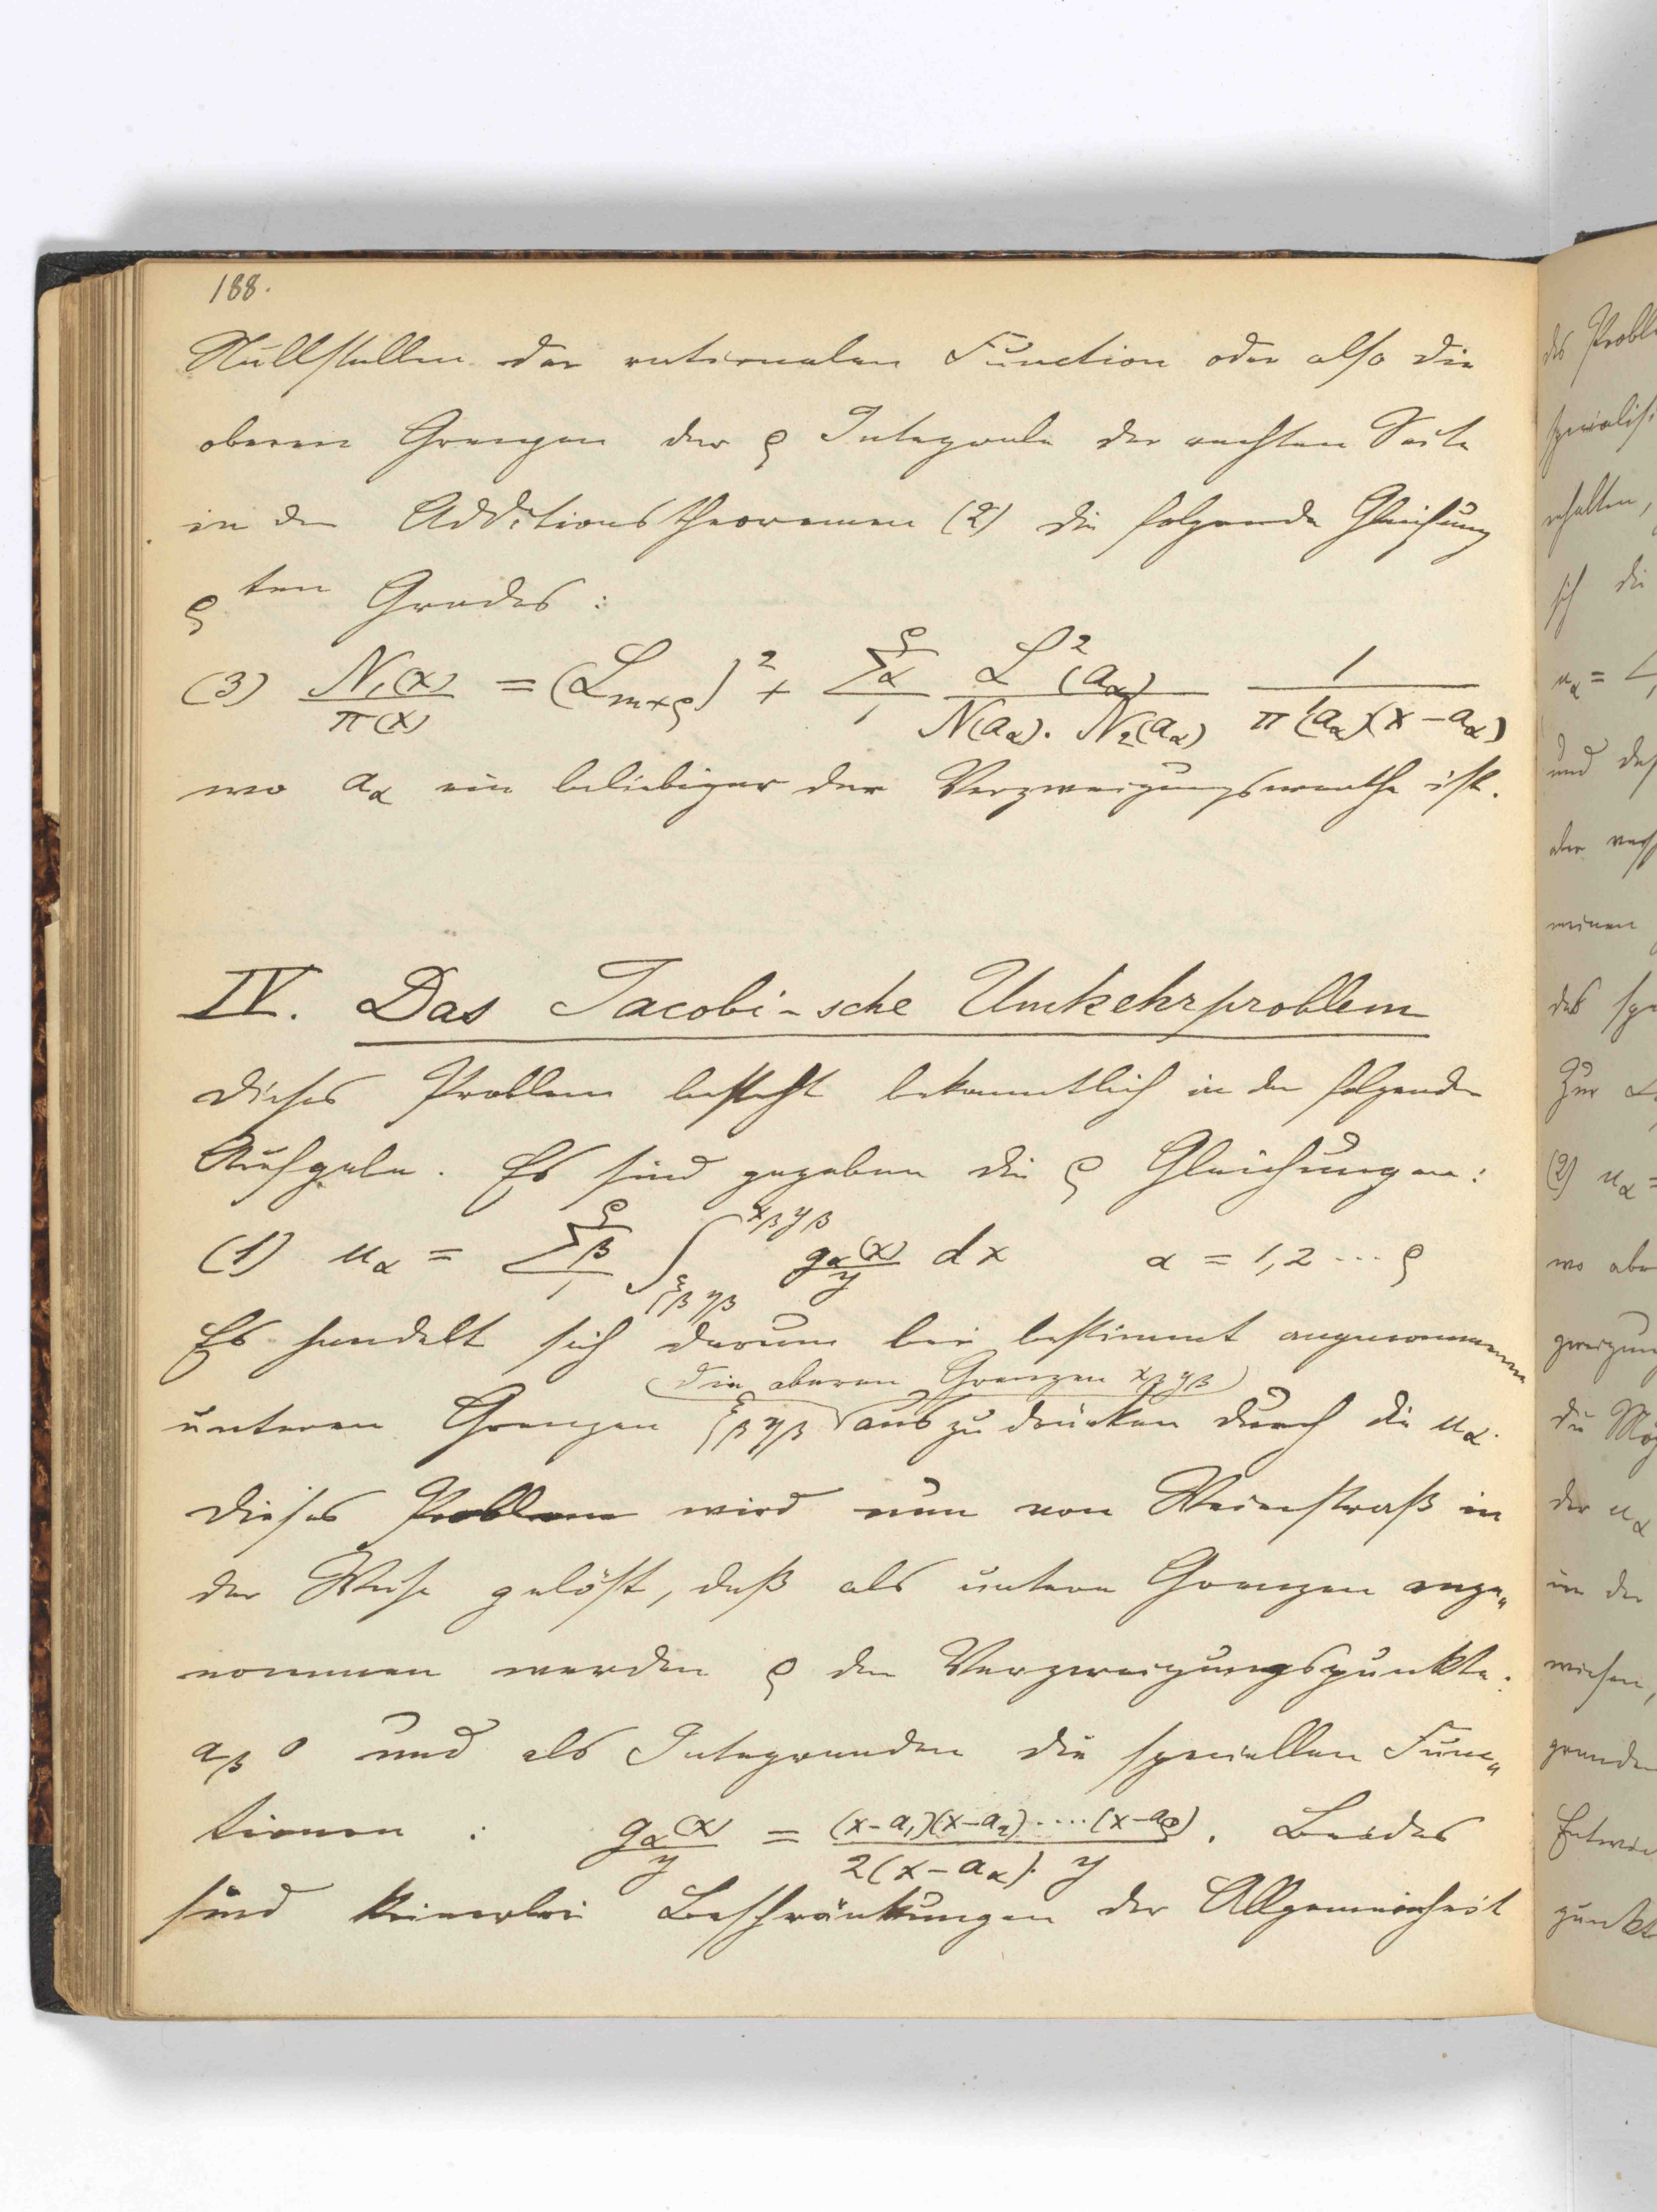 188.
Nullstellen der rationalen Function oder also die
oberen Grenzen der ϱ Integrale der rechten Seite
in den Additionstheoremen (2) die folgende Gleichung
ϱ^ten Grades :
(3) N₁(x)/π(x) = (L_{m×ϱ})² + Σ_{α 1}^{ϱ} L²(a_α)/(N(a_α). N₂(a_α)) 1/(π'(a_α)(x - a_α))
wo a_α ein beliebiger der Verzweigungswerthe ist.
IV. Das Jacobi-sche Umkehrproblem
Dieses Problem besteht bekanntlich in der folgenden
Aufgabe. Es sind gegeben die ϱ Gleichungen :
(1) u_α = Σ_{β 1}^{ϱ} ∫_{ξ_β η_β}^{x_β y_β} g_α(x)/y dx α = 1,2 ... ϱ
Es handelt sich darum bei bestimmt angenommenen
(die oberen Grenzen x_β y_β)
unteren Grenzen ξ_β η_β auszudrücken durch die u_α.
Dieses Problem wird nun von Weierstraß in
der Weise gelöst, daß als untere Grenzen ange„
nommen werden ϱ der Verzweigungspunkte.
a_β 0 und als Integranden die speciellen Func„
tionen : g_α(x)/y = (x-a₁)(x-a₂).....(x-a_ϱ)/(2(x-a_α). y) . Beides
sind keinerlei Beschränkungen der Allgemeinheit
des Probl
erhalten,
sich die
u_α =
und
meinen
des
Zur
(2) u_α =
wo
der u_α
in der